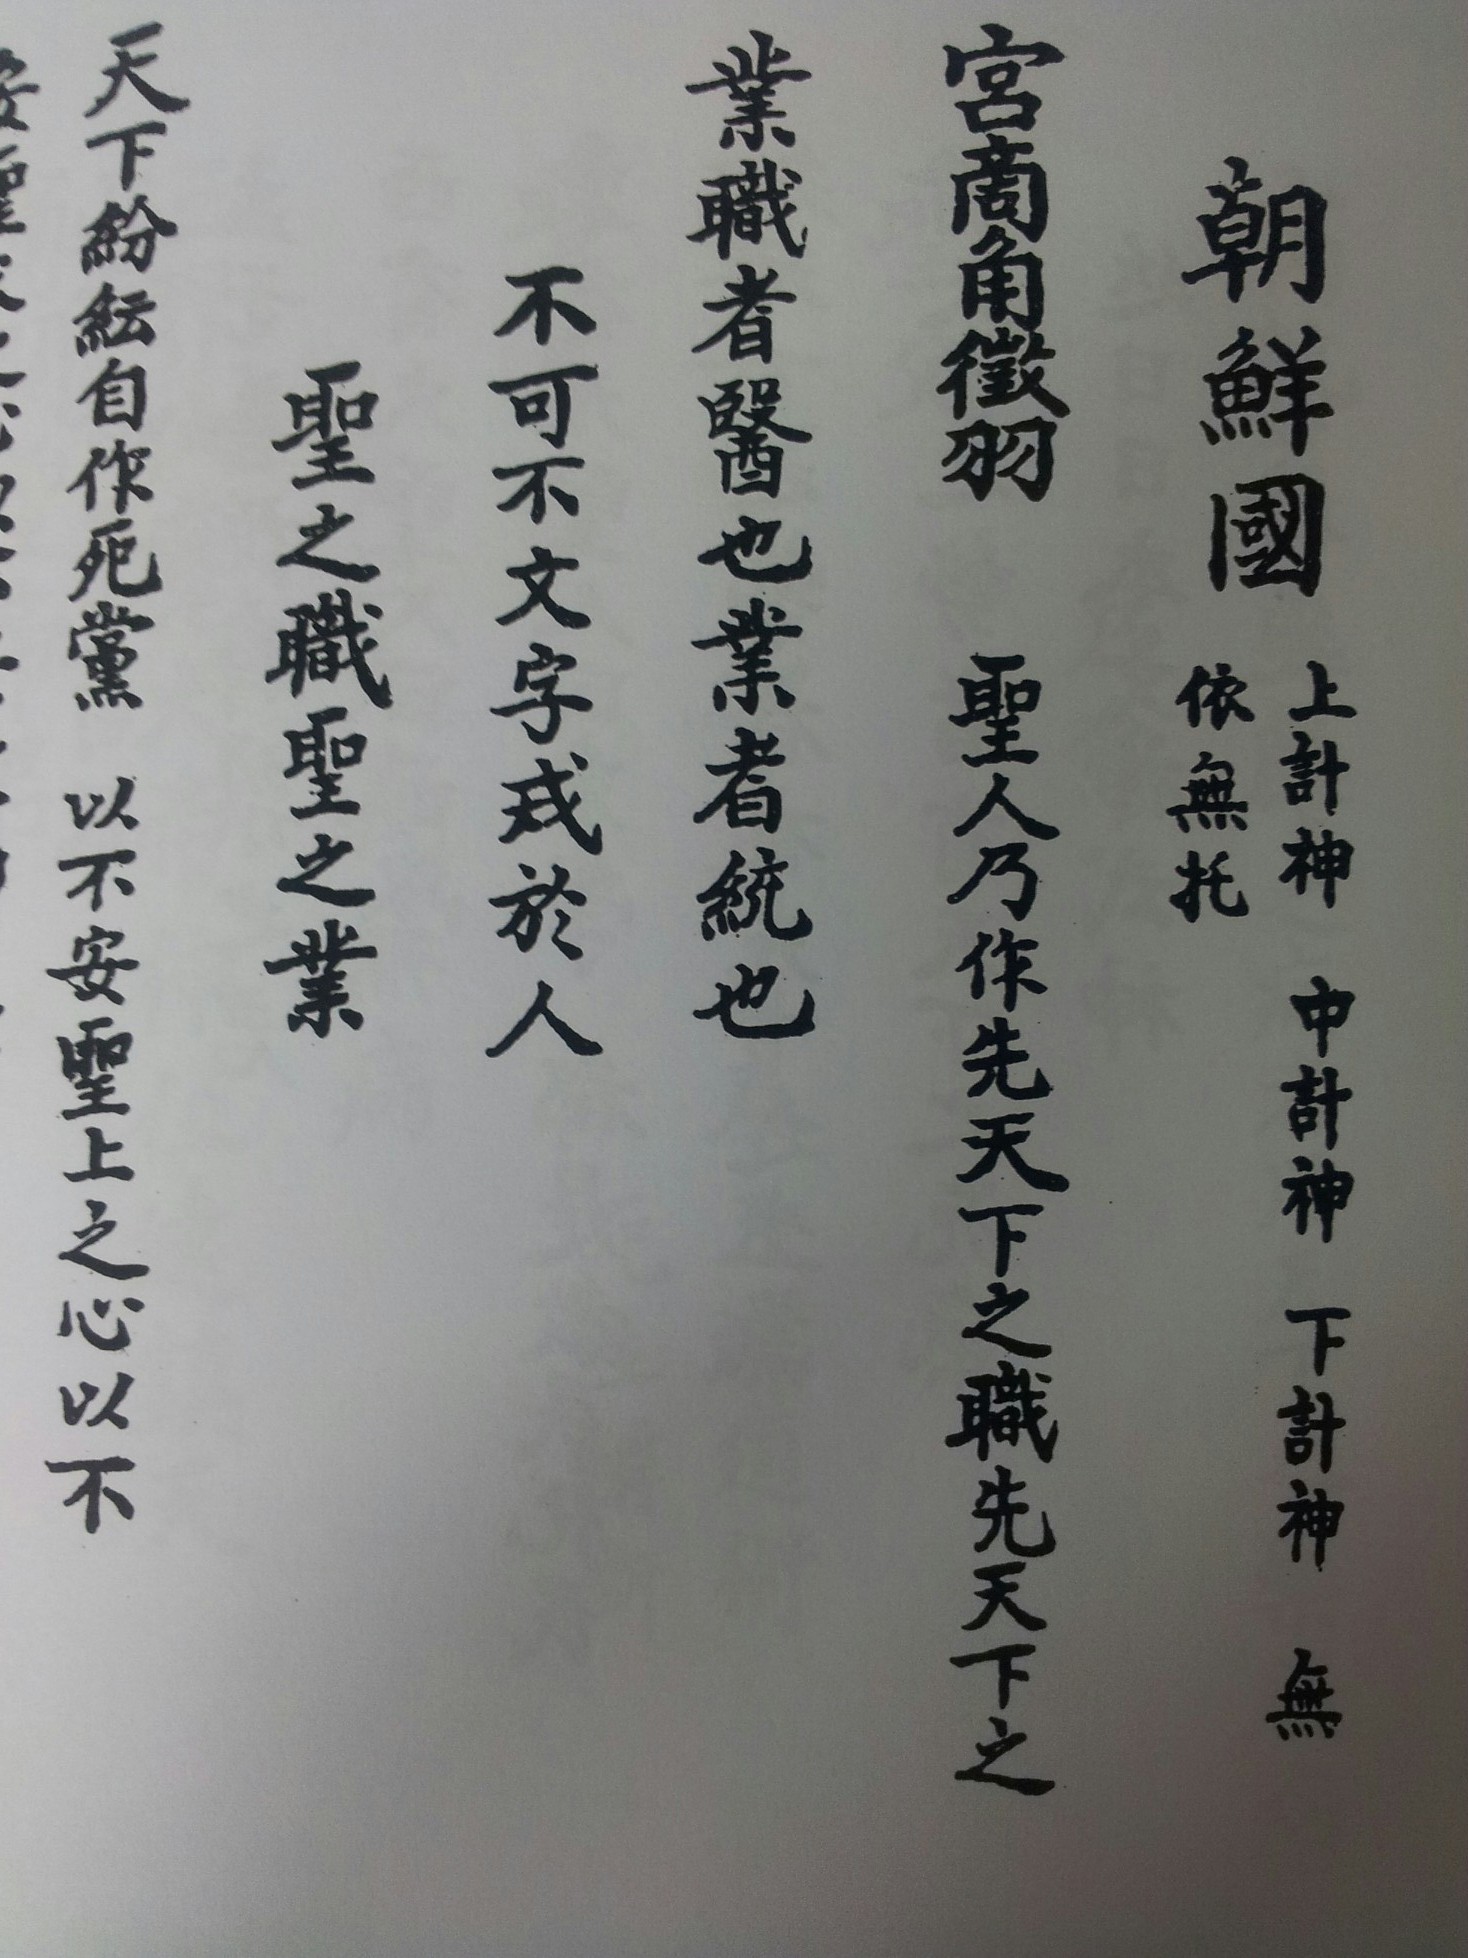 朝鮮國
上計神 中計神 下計神 無
依無托
宮商角徵羽 聖人乃作先天下之職先天下之
業職者醫也業者統也
不可不文字戎於人
聖之職聖之業
天下紛紜自作死黨 以不安聖上之心以不
安聖